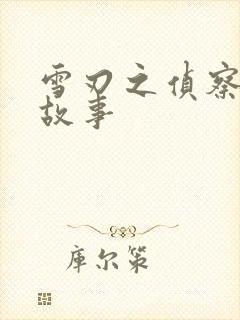 雪刃之偵察
故事
库尔策